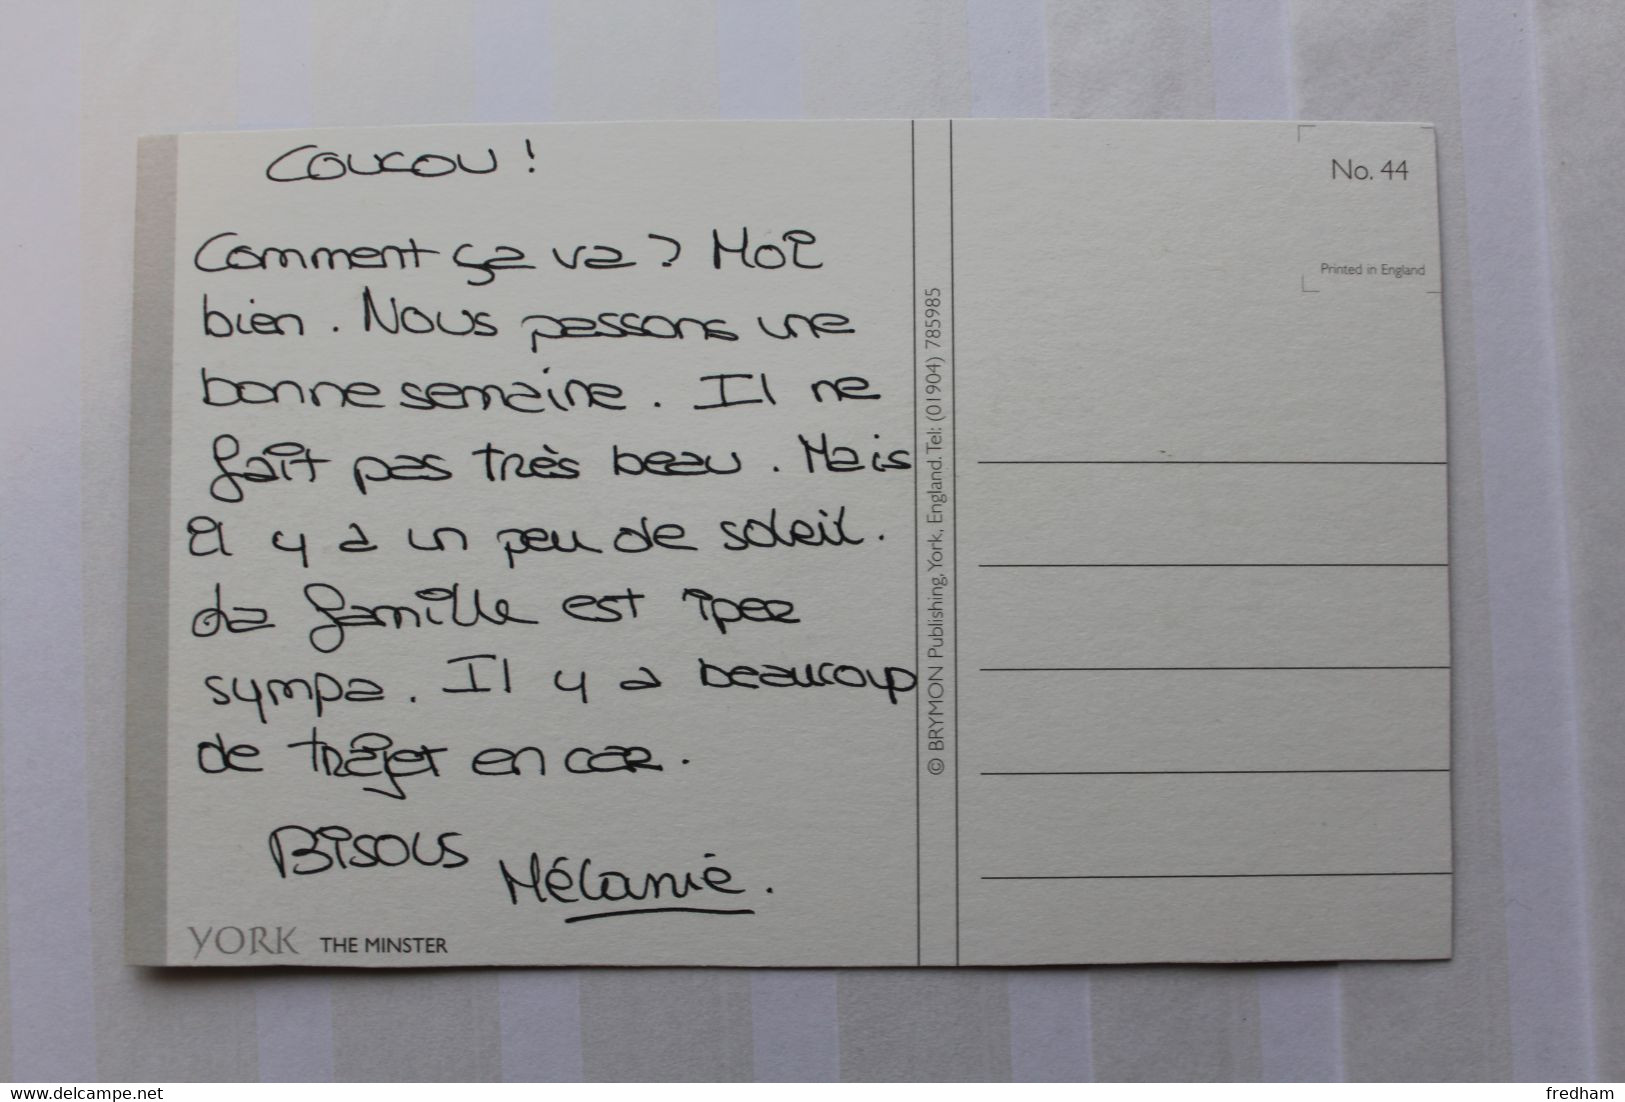 Coucou !
Comment ça va ? Moi
bien. Nous passons une
bonne semaine. Il ne
fait pas très beau. Mais
il y a un peu de soleil.
La famille est iper
sympa. Il y a beaucoup
de trajet en car.
Bisous
Mélanie.
YORK THE MINSTER
© BRYMON Publishing, York, England. Tel: (01904) 785985
No. 44
Printed in England
www.delcampe.net
fredham